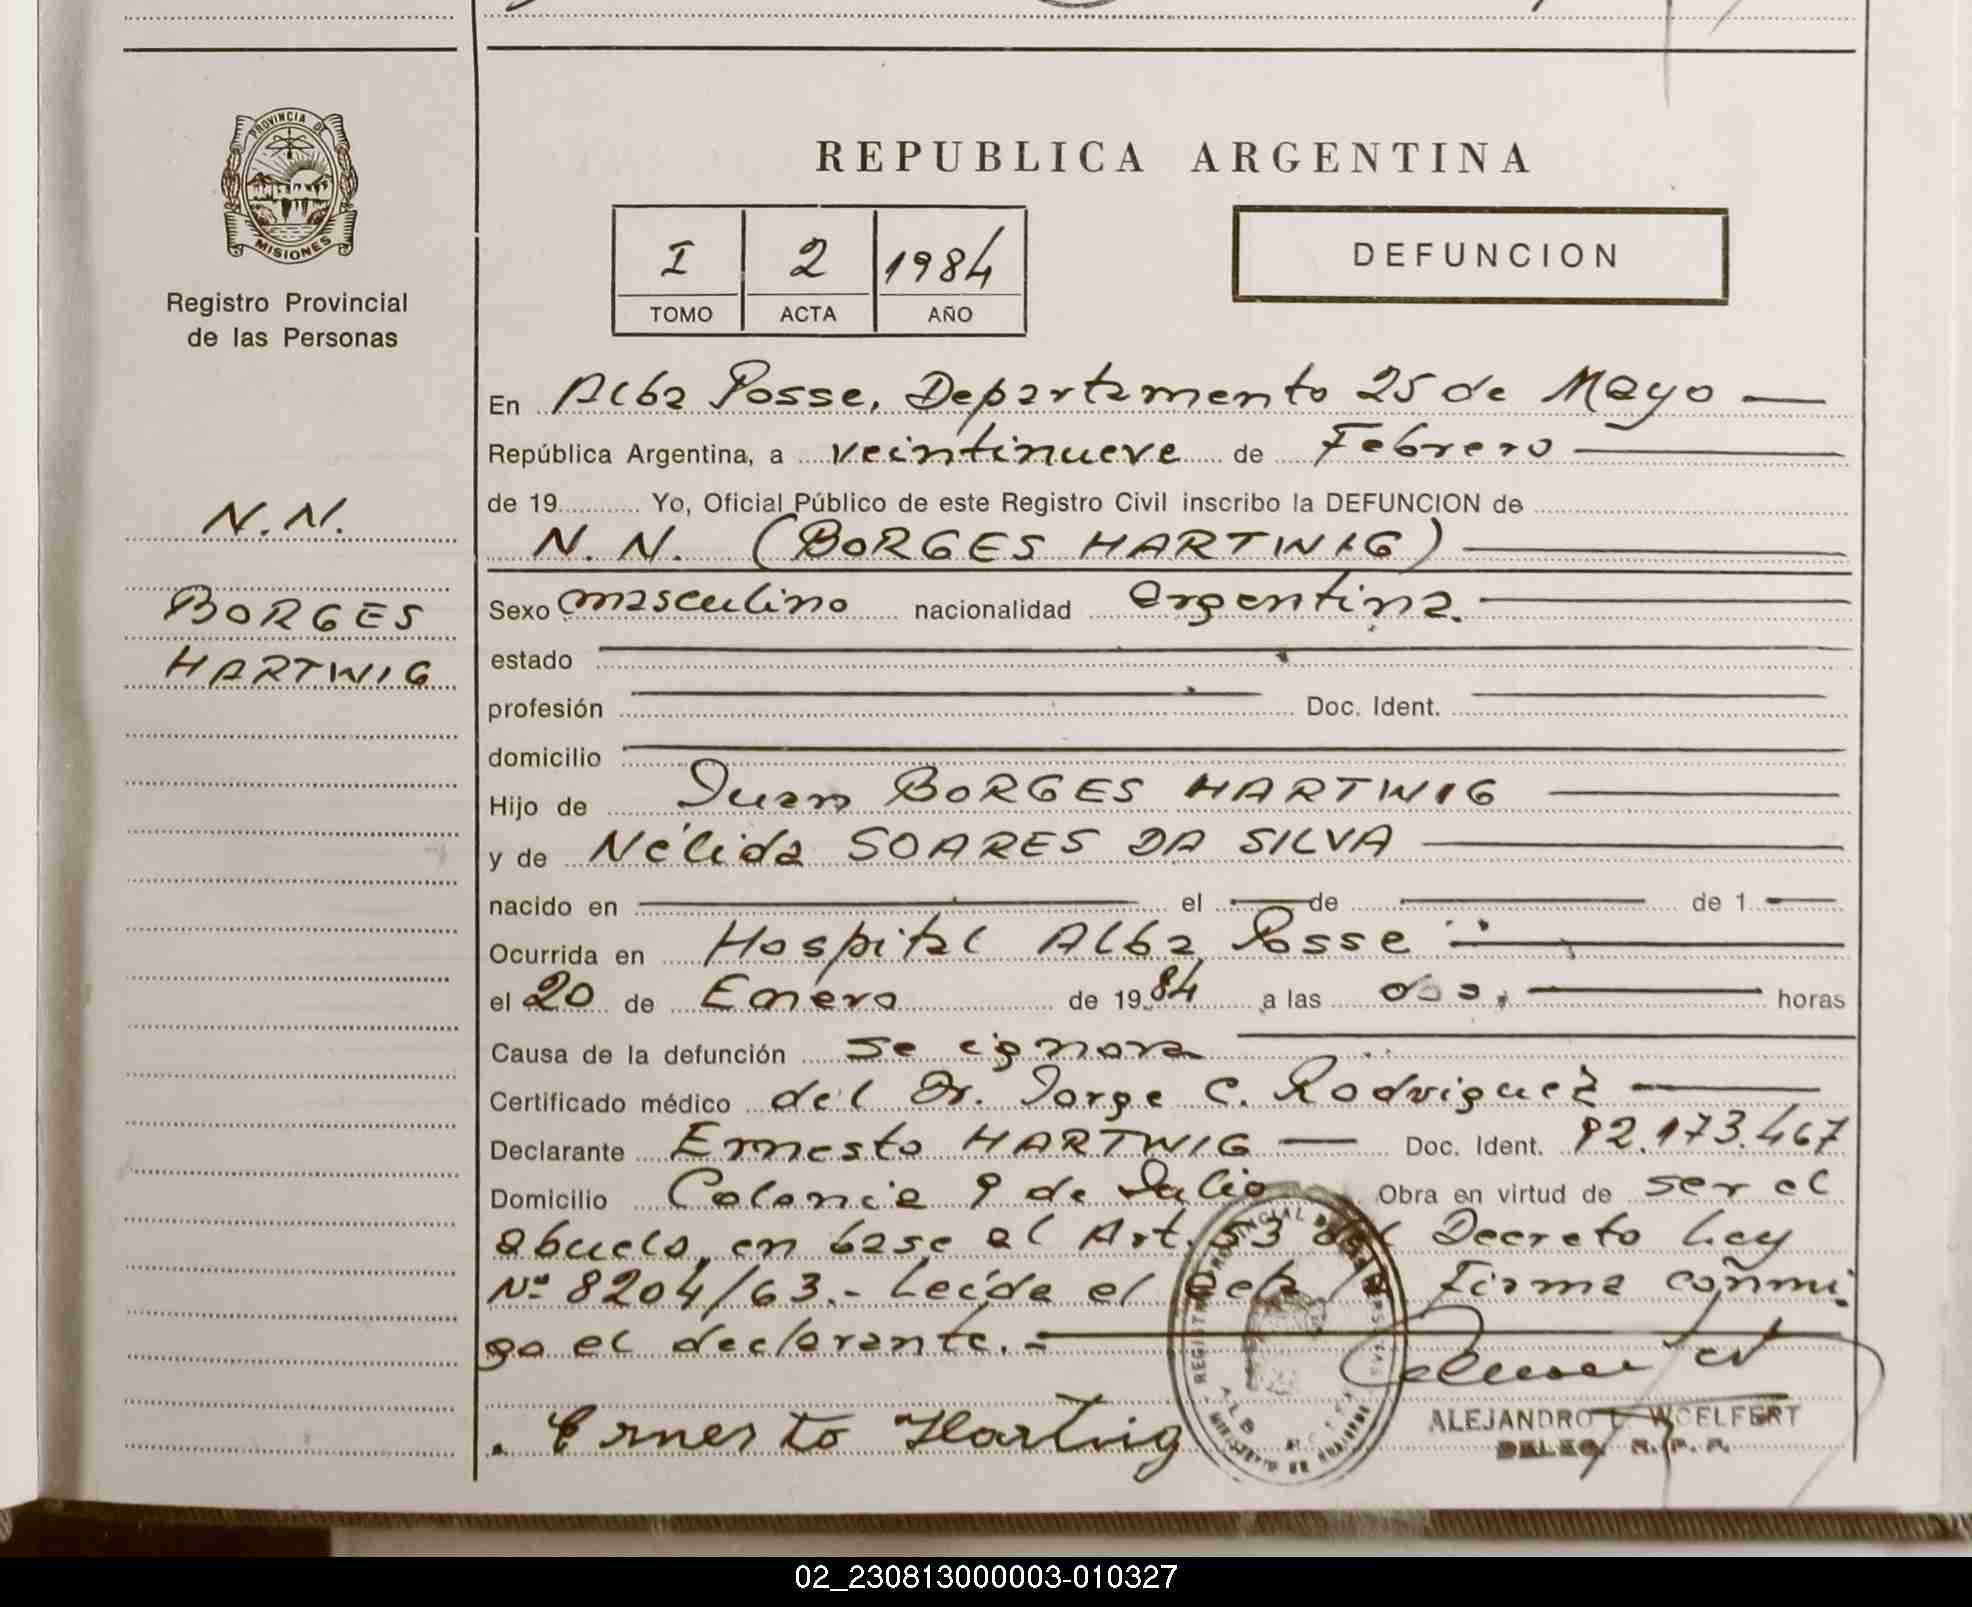 PROVINCIA DE
MISIONES
Registro Provincial
de las Personas
N.N.
BORGES
HARTWIG
REPUBLICA ARGENTINA
I 2 1984
TOMO ACTA AÑO
DEFUNCION
En Alba Posse, Departamento 25 de Mayo
República Argentina, a veintinueve de Febrero
de 19 Yo, Oficial Público de este Registro Civil inscribo la DEFUNCION de
N. N. (BORGES HARTWIG)
Sexo masculino nacionalidad argentina.
estado
profesión Doc. Ident.
domicilio
Hijo de Juan BORGES HARTWIG
y de Nélida SOARES DA SILVA
nacido en el de de 1
Ocurrida en Hospital Alba Posse
el 20 de Enero de 1984 a las dos, horas
Causa de la defunción se ignora
Certificado médico del Dr. Jorge C. Rodriguez
Declarante Ernesto HARTWIG Doc. Ident. 92.173.467
Domicilio Colonia 9 de Julio Obra en virtud de ser el
abuelo, en base al Art. 53 del Decreto Ley
Nº 8204/63.- Leída el Firma conmi
go el declarante.-
Ernesto Hartwig
ALEJANDRO WOELFERT
DELEG. R. P. P.
02_230813000003-010327